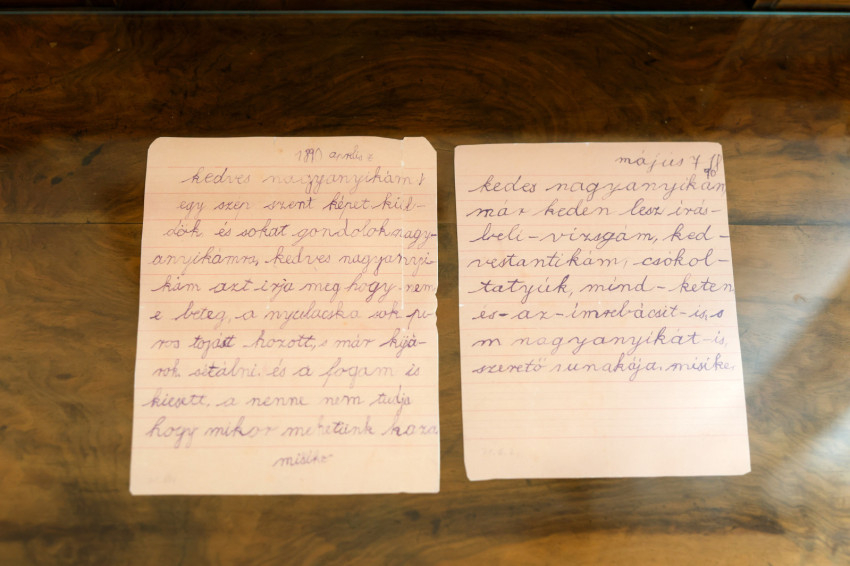 1891 aprilis 7
kedves nagyanyikám!
egy szep szent képet kül-
dök és sokat gondolok nagy-
anyikámra, kedves nagyanyi-
kám azt irja meg hogy nem
e beteg, a nyulacska sok pi-
ros tojást hozott, s már kijá-
rok sétálni és a fogam is
kiesett, a nenne nem tudja
hogy mikor mehetünk haza
misike
május 7
kedes nagyanyikám
már keden lesz irás-
beli-vizsgám, ked-
vestantikám, csókol-
tatyuk, mind-keten
és-az-imrebácsit-is, s
m nagyanyikát-is,
szerető unakája, misike